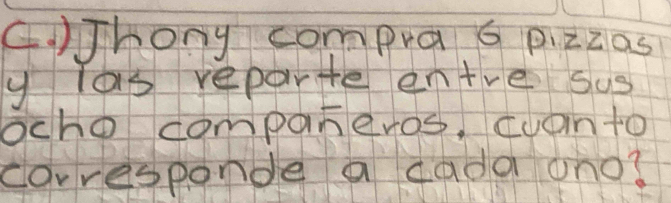 C.) Jhony compra 6 pizzas
y las reparte entre sus
ocho compañeros. cuanto
corresponde a cada uno?